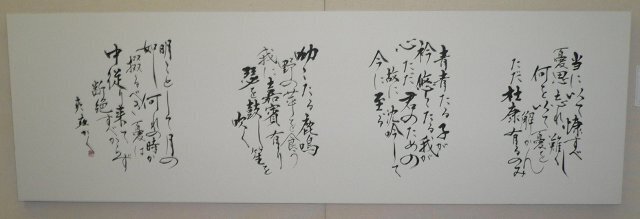 当に以て慷すべし
憂思忘れ難く
何を以て憂を
解かん
ただ杜康有るのみ
青青たる子が
衿悠々たる我が
心ただ君のための
故に沈吟して
今に至る
呦々たる鹿鳴
野の苹を食う
我に嘉賓有り
琴を鼓し笙を
吹く
明々として月の
如し何れの時か
掇るべき憂は
中従り来て
断絶すべからず